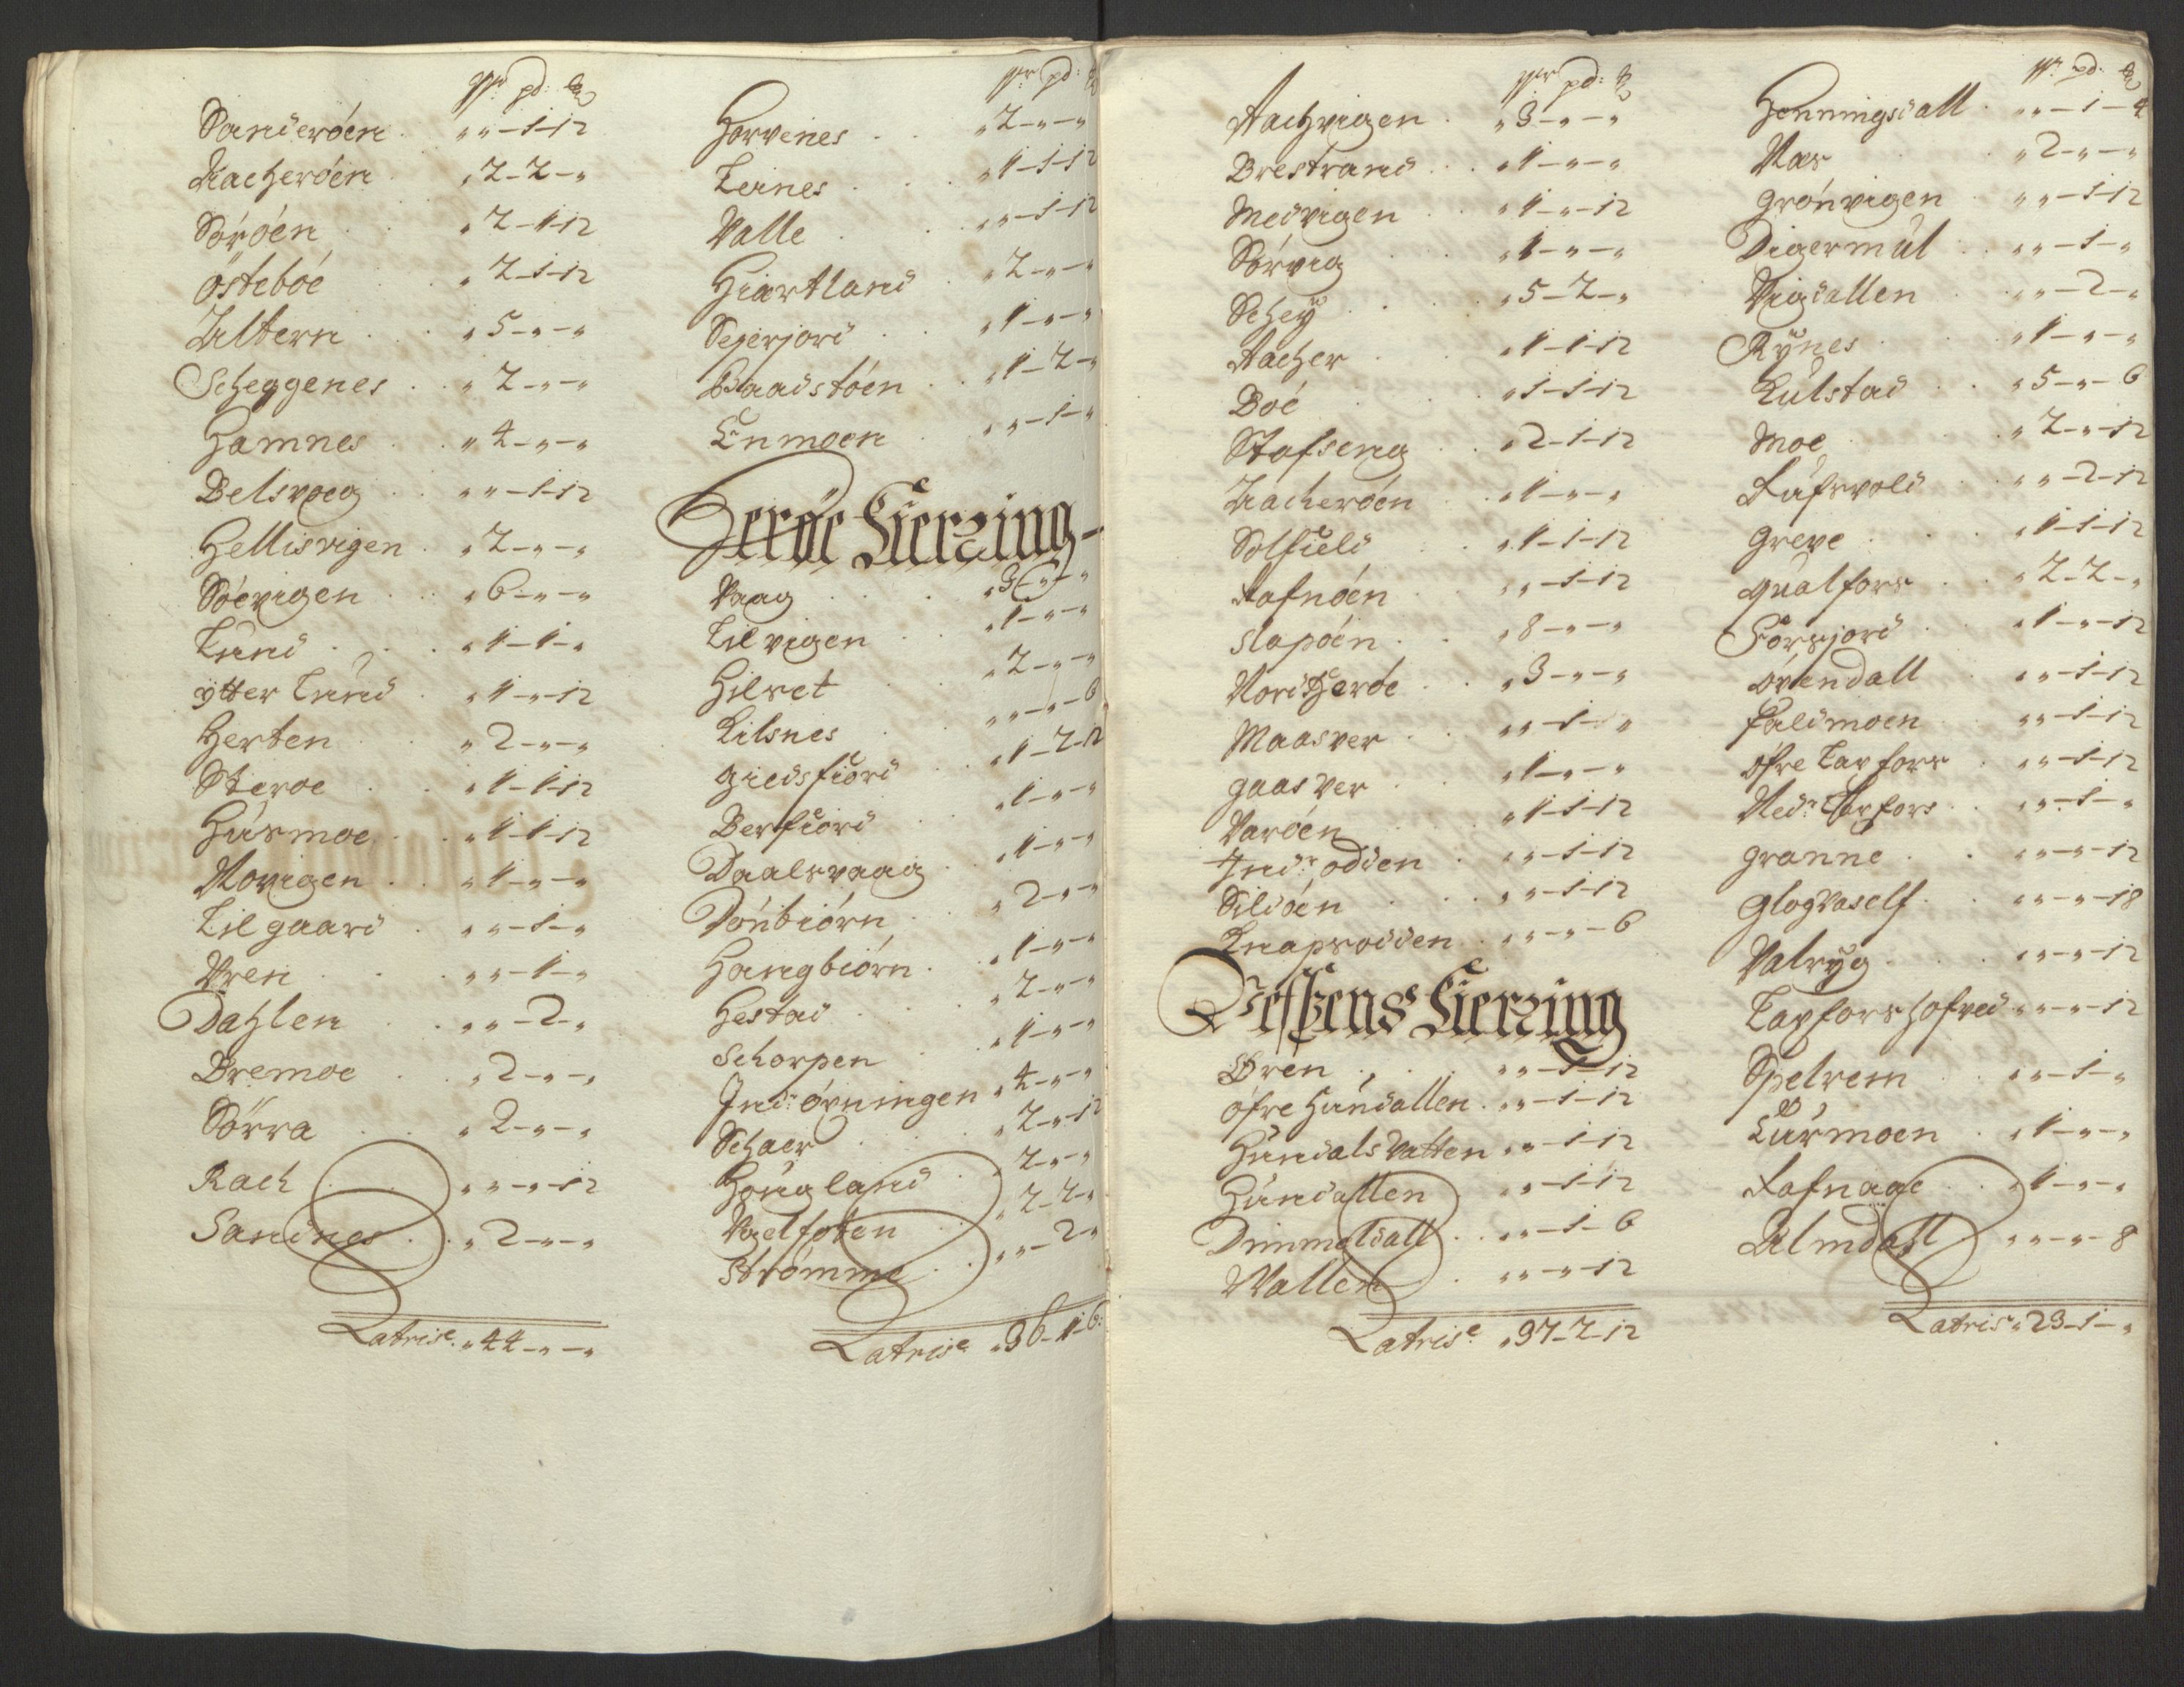 Wr pd: ℔
Sanderöen . „ „ – 1 – 12
Aacheröen . „ 2 – 2 – „
Söröen . „ 2 – 1 – 12
östeböe . „ 2 – 1 – 12
Ultern . „ 5 – „ – „
Scheggenes . „ 2 – „ – „
Hamnes . „ 4 – „ – „
Belsvoeg . „ „ – 1 – 12
Hellisvigen . „ 2 – „ – „
Söevigen . „ 6 – „ – „
Lund . „ 1 – 1 – „
ytter Lund . „ 1 – „ – 12
Herten „ 2 – „ – „
Steroe . „ 1 – 1 – 12
Husmoe . „ 1 – 1 – 12
Movigen . „ 1 – „ – „
Lilgaard . „ „ – 1 – „
Vren . „ „ – 1 – „
Dahlen . „ „ – 2 – „
Bremoe . „ 2 – „ – „
Sörra . „ 2 – „ – „
Rach . „ „ – „ – 12
Sandnes . „ 2 – „ – „
Latris: „ 44 – „ – „
Wr pd: ℔
Horvenes . „ 2 – „ – „
Leines . „ 1 – 1 – 12
Valle . „ „ – 1 – 12
Hiartland . „ 2 – „ – „
Sejerjord . „ 1 – „ – „
Baadstöen . „ 1 – 2 – „
Enmoen . „ „ – 1 – „
Heröe Fierzing –
Vaag . „ 3 – „ – „
Lilvigen . „ 1 – „ – „
Hilret . „ 2 – „ – „
Kilsnes . „ „ – „ – 6
Giedsfiord . „ 1 – 2 – 12
Berfiord . „ 1 – „ – „
Daalsvaag . „ 1 – „ – „
Dönbiörn . „ 2 – „ – „
Hangbiörn . „ 1 – „ – „
Hestad . „ 2 – „ – „
Schorpen . „ 1 – „ – „
Ind: örningen „ 4 – „ – „
Schaer . „ 2 – „ – 12
Högland . „ 2 – „ – „
Vaelfoten . „ 2 – 2 – „
Strömme . „ „ – 2 – „
Latris: „ 36 – 1 – 6
Wr pd: ℔
Aachvigen . „ 3 – „ – „
Brestrand . „ 1 – „ – „
Medvigen . „ 1 – „ – 12
Sörvig . „ 1 – „ – „
Schey . „ 5 – 2 – „
Aacher . „ 1 – 1 – 12
Böe . „ 1 – 1 – 12
Stafseng . „ 2 – 1 – 12
Aacheröen . „ 1 – „ – „
Solfield . „ 1 – 1 – 12
Rafnöen . „ „ – 1 – 12
Slapöen . „ 8 – „ – „
Nordheröe . „ 3 – „ – „
Maasver . „ „ – 1 – „
Gaasver . „ 1 – „ – „
Varöen . „ 1 – 1 – 12
Indr odden . „ „ – 1 – 12
Sildöen . „ „ – 1 – 12
Knapsodden . „ „ – „ – 6
Vefsens Fierzing
Ören . „ „ – 1 – 12
öfre Hundallen . „ „ – 1 – 12
Hundals Vatten „ „ – 1 – 12
Hundallen „ „ – 1 – 12
Dimmeldall . „ „ – 1 – 6
Wallen . „ „ – „ – 12
Latris: „ 37 – 2 – 12
Wr pd: ℔
Henningsdall . „ „ – 1 – 4
Næs „ 2 – „ – „
Grönvigen . „ „ – 1 – 12
Digermul . „ „ – 1 – „
Vigdallen . „ „ – 2 – „
Rynes . „ 1 – „ – „
Kulstad . „ 5 – „ – 6
Moe . „ 2 – „ – 12
Lufsvold . „ „ – 2 – 12
Greve . „ 1 – 1 – 12
Qualfors . „ 2 – 2 – „
Forsjord . „ 1 – „ – 12
Övendall . „ „ – 1 – 12
Faldmoen . „ „ – 1 – 12
öfre Laxfors . „ „ – 1 – 12
Nedr Laxfors . „ „ – 1 – „
Granne . „ „ – „ – 12
Glogvaself . „ „ – „ – 18
Valryg . „ „ – „ – 12
Laxfors hofved „ „ – „ – 12
Spelrem „ „ – 1 – „
Lurmoen . „ 1 – „ – „
Rafnaae . „ 1 – „ – „
Almdall . „ „ – „ – 8
Latris: „ 23 – 1 – „